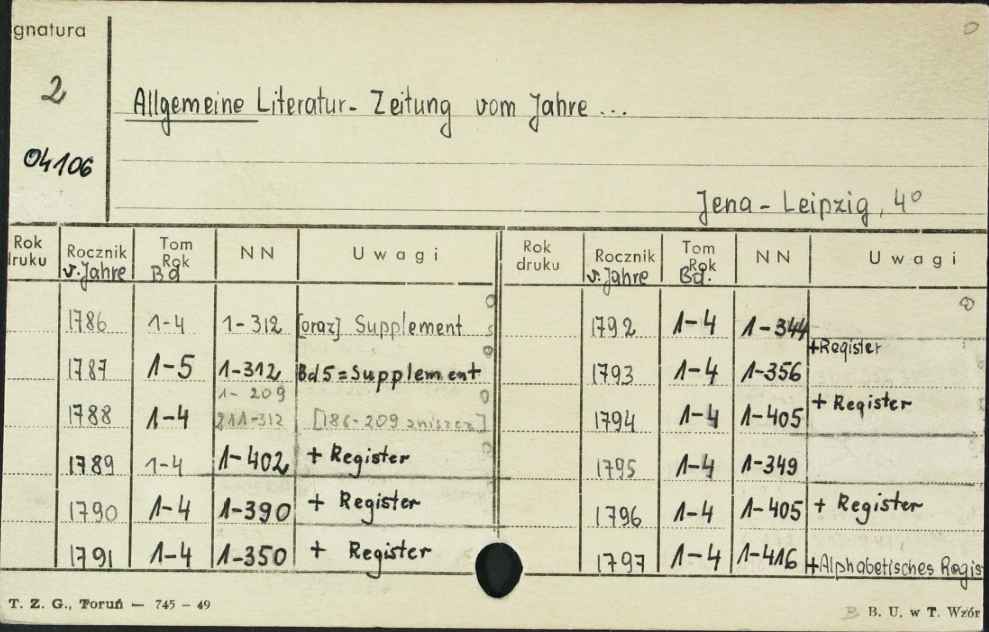 gnatura
2
04106
Allgemeine Literatur-Zeitung vom Jahre ...
Jena-Leipzig, 4°
Rok druku Rocznik v. Jahre Tom Rok Bd NN Uwagi
1786 1-4 1-312 [oraz] Supplement
1787 1-5 1-312 Bd 5 = Supplement
1788 1-4 1-209 211-312 [186-209 zniszcz]
1789 1-4 1-402 + Register
1790 1-4 1-390 + Register
1791 1-4 1-350 + Register
Rok druku Rocznik v. Jahre Tom Rok Bd. NN Uwagi
1792 1-4 1-344 + Register
1793 1-4 1-356
1794 1-4 1-405 + Register
1795 1-4 1-349
1796 1-4 1-405 + Register
1797 1-4 1-416 + Alphabetisches Regis
T. Z. G., Toruń — 745 - 49
B. U. w T. Wzór